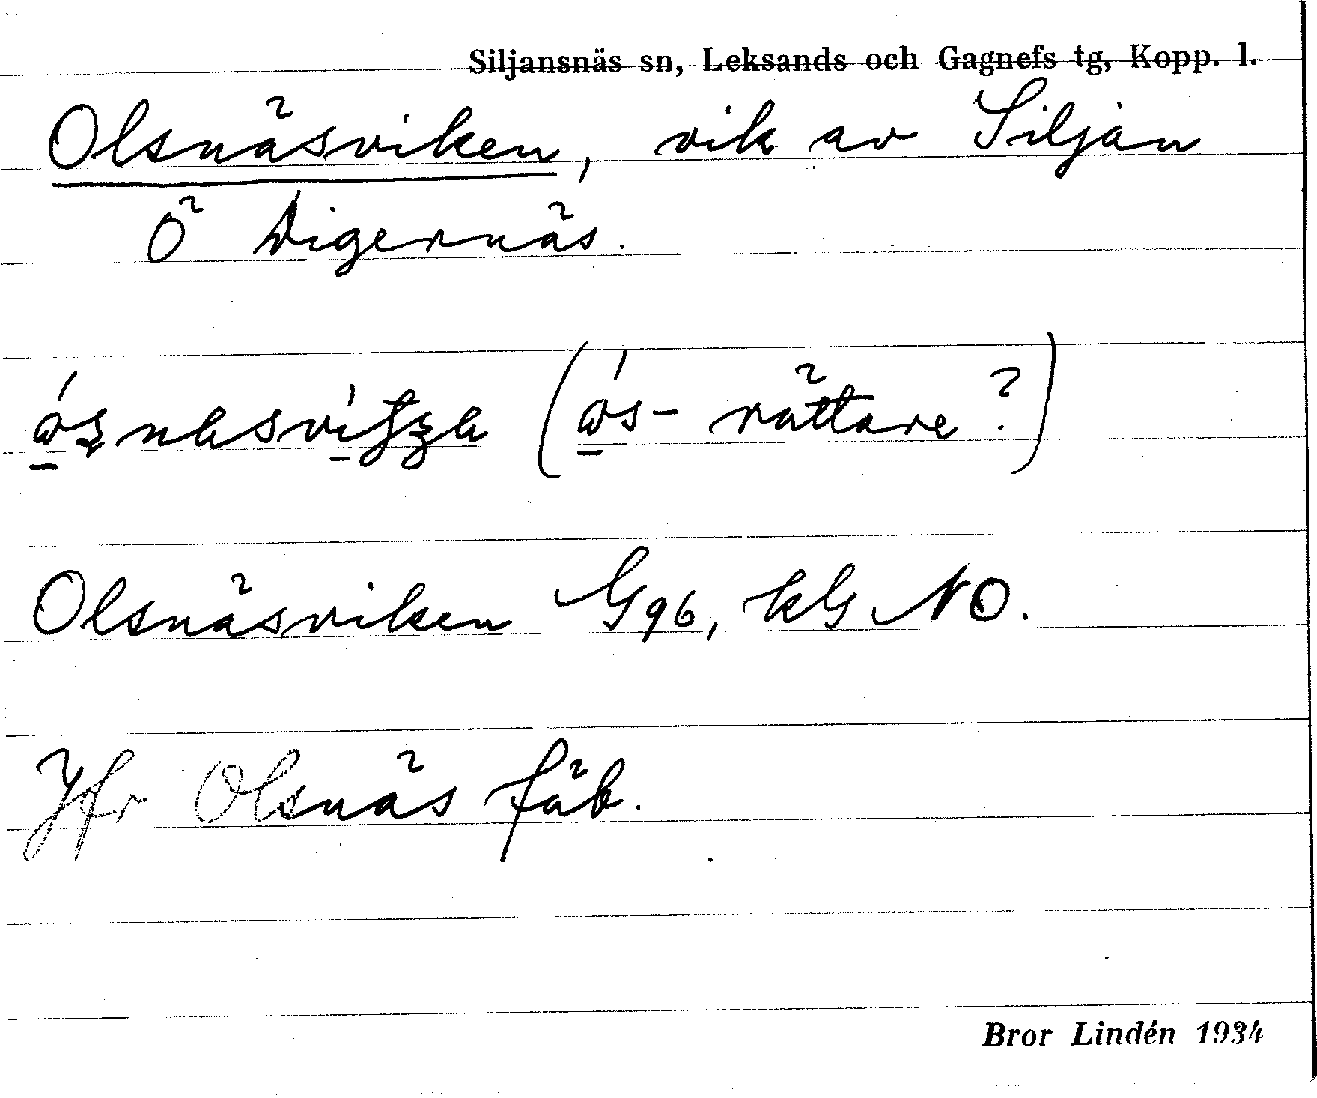 Siljansnäs sn, Leksands och Gagnefs tg, Kopp. l.
Olsnäsviken, vik av Siljan
Ö Digernäs.
(ås- rättare?)
Olsnäsviken G96, kG NO.
Jfr Olsnäs fäb.
Bror Lindén 1934